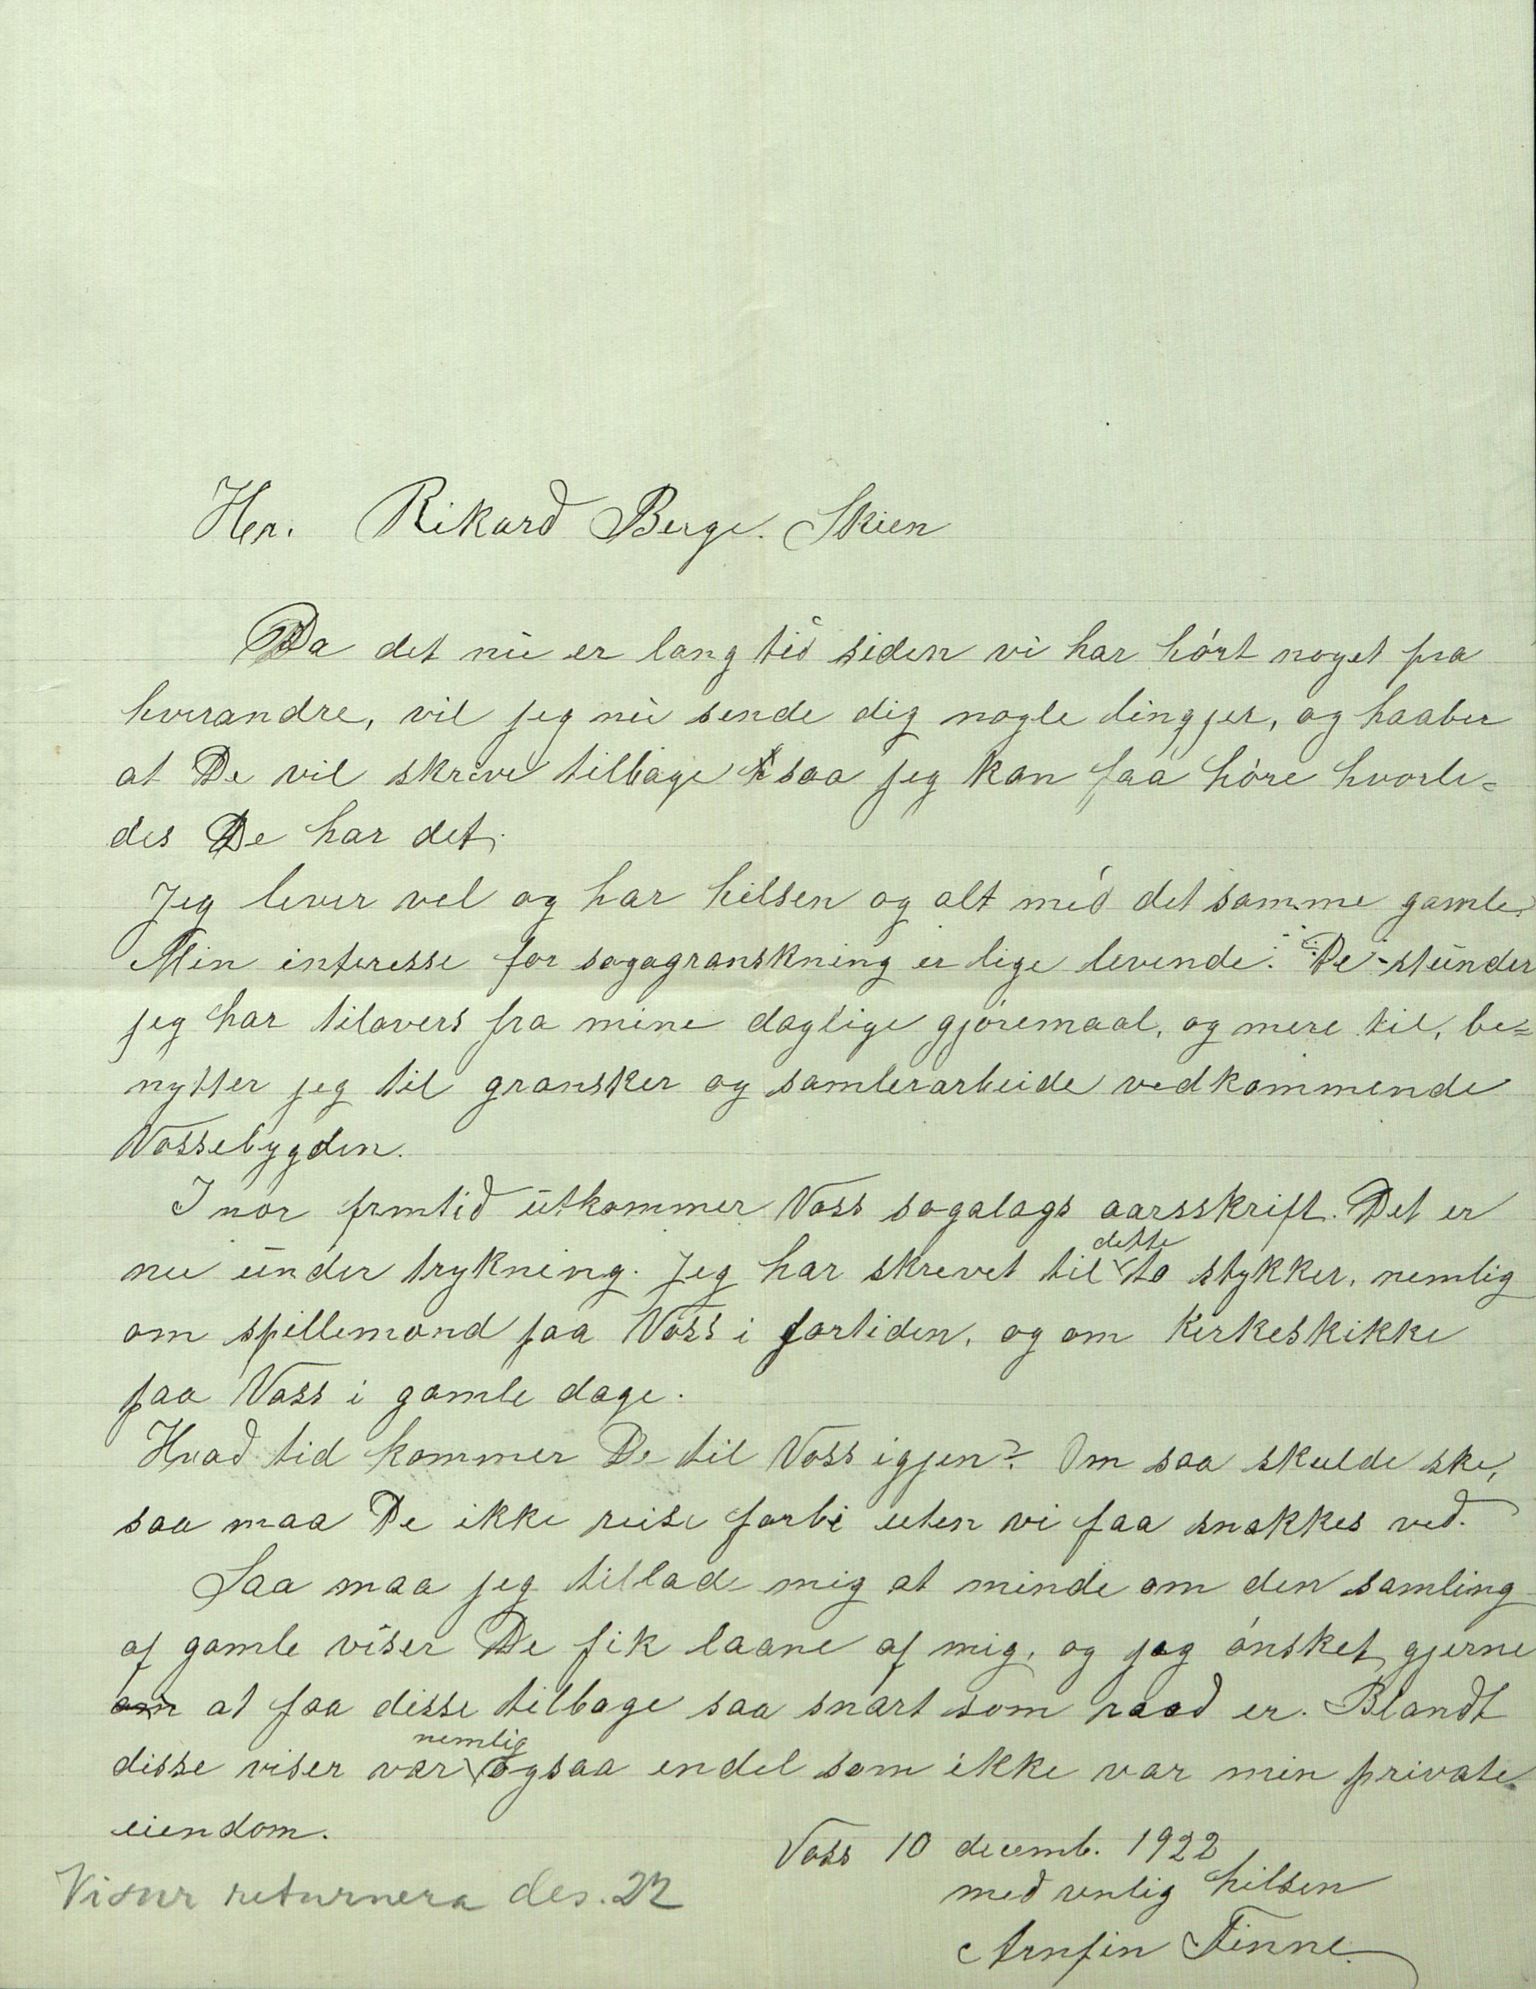 Hr. Rikard Berge. Skien
Da det nu er lang tid siden vi har hört noget fra
hverandre, vil jeg nu sende dig nogle lingjer, og haaber
at De vil skrive tilbage saa jeg kan faa höre hvorle-
des De har det.
Jeg lever vel og har helsen og alt med det samme gamle.
Min interesse for sogagranskning er lige levende. De stunder
jeg har tilovers fra mine daglige gjöremaal, og mere til, be-
nytter jeg til gransker og samlerarbeide vedkommende
Vossebygden.
I nær fremtid utkommer Voss sogalags aarsskrift. Det er
nu under trykning. Jeg har skrevet til dette to stykker, nemlig
om spillemænd paa Voss i fortiden, og om Kirkeskikke
paa Voss i gamle dage.
Hvad tid kommer De til Voss igjen? Om saa skulde ske,
saa maa De ikke reise forbi uten vi faa snakkes ved.
Saa maa jeg tillade mig at minde om den samling
af gamle viser De fik laane af mig, og jeg önsket gjerne
om at faa disse tilbage saa snart som raad er. Blandt
disse viser var nemlig ogsaa endel som ikke var min private
eiendom.
Voss 10 decemb. 1922
med venlig hilsen
Arnfin Finne.
Visur returnera des. 22